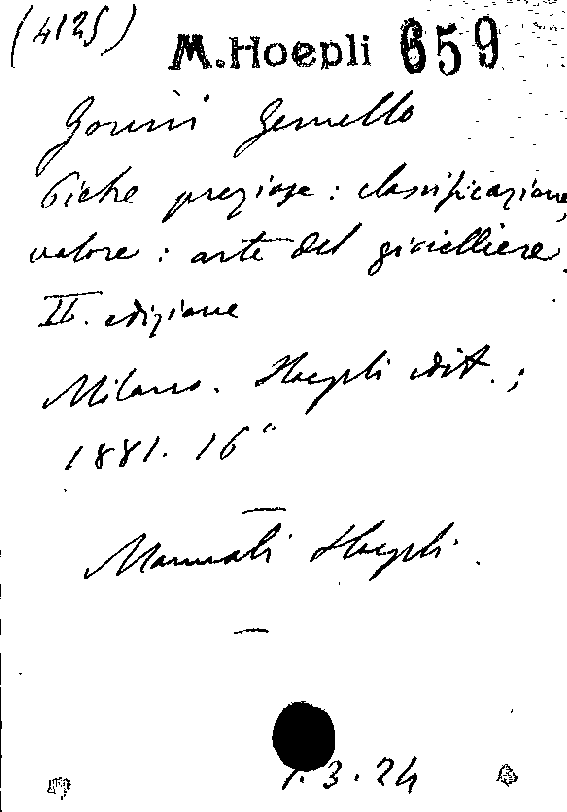 (4125)
M. Hoepli 659
Gorini Gemello
Pietre preziose: classificazione,
valore: arte del gioielliere.
II. edizione
Milano. Hoepli edit.;
1881. 16°
—
Manuali Hoepli.
—
1.3.24